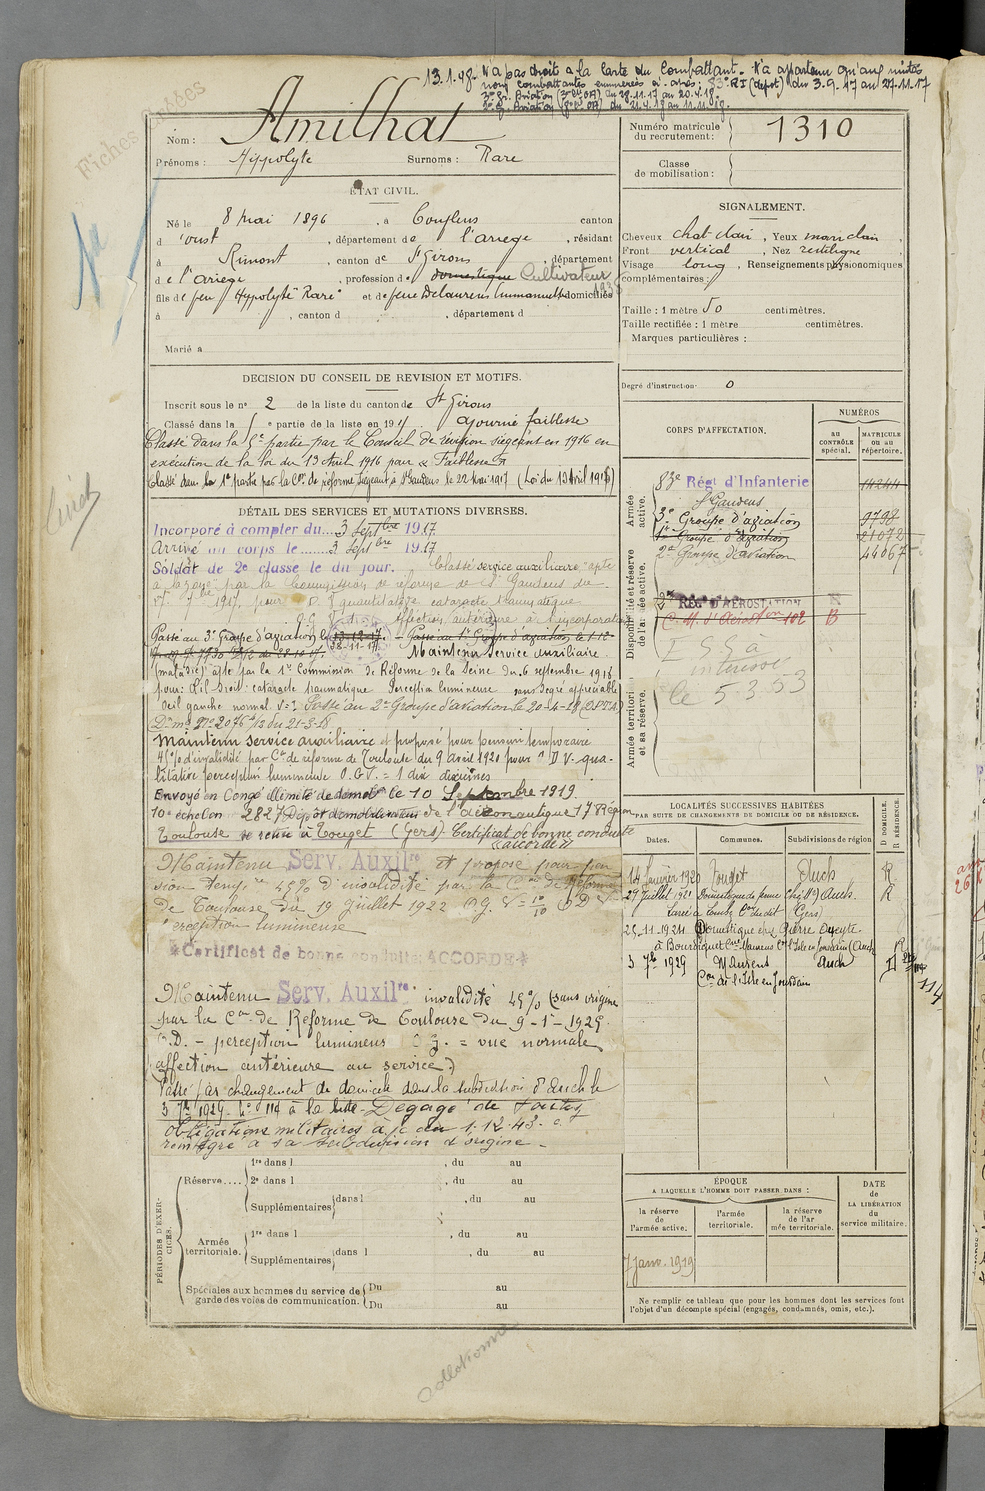 13.1.48. N'a pas droit à la Carte du Combattant. N'a appartenu qu'aux unités
non combattantes énumérées ci-après: 83e RI (dépot) du 3.9.17 au 27.11.17
3e Gr. Aviation du 28.11.17 au 20.4.18.
2e Gr. Aviation du 21.4.18 au 11.11.18.
Fiches
Nom: Amilhat
Prénoms: Hippolyte Surnoms: Rare
Numéro matricule du recrutement: 1310
Classe de mobilisation:
ÉTAT CIVIL.
Né le 8 Mai 1896, à Couflens canton
d'oust, département de l'ariege, résidant
à Rimont, canton de St Girons, département
de l'Ariege, profession de domestique Cultivateur
fils de feu Hippolyte Rare et de feue Delaurens domiciliés
à , canton d , département d
Marié à
SIGNALEMENT.
Cheveux chat-clair, Yeux marr clair,
Front vertical, Nez rectiligne,
Visage long, Renseignements physionomiques
complémentaires:
Taille: 1 mètre 50 centimètres.
Taille rectifiée: 1 mètre centimètres.
Marques particulières:
Degré d'instruction: 0
DECISION DU CONSEIL DE REVISION ET MOTIFS.
Inscrit sous le no 2 de la liste du canton de St Girons
Classé dans la 5e partie de la liste en 191 ajourné faiblesse
Classé dans la 5e partie par le Conseil de révision siégeant en 1916 en
exécution de la loi du 13 Avril 1916 pour « Faiblesse »
Classé dans la 1e partie par la Con de réforme siégeant à St Gaudens le 22 Mai 1917 (Loi du 13 Avril 1916)
DÉTAIL DES SERVICES ET MUTATIONS DIVERSES.
Incorporé à compter du...3 Septbre 1917
Arrivé au corps le.......3 Septbre 1917
Soldat de 2e classe le du jour. Classé service auxiliaire apte
par la Commission de réforme de St Gaudens du
7bre 1917, pour cataracte traumatique
affection antérieure à l'incorporation
Passé au 3e Groupe d'aviation le 13-12-17. 28-11-17. Passé au 1er Groupe d'aviation le 1-12-
Maintenu Service Auxiliaire
apte par la 1e Commission de Réforme de la Seine du 6 septembre 1918
pour: Œil droit: cataracte traumatique Perception lumineuse sans degré appréciable
Oeil gauche normal. Passé au 2e Groupe d'aviation le 20-4-18
du 21-3-18
Maintenu service auxiliaire et proposé pour pension temporaire
d'invalidité par Con de réforme de Toulouse du 9 avril 1920 pour O D V. qua-
litative perception lumineuse O.G.V. = 1 dix dixièmes
Envoyé en Congé illimité de démobon le 10 Septembre 1919.
10e échelon 2827 Dépôt démobilisateur de l'aéronautique 17 Région
Toulouse se retire à Touget (Gers) Certificat de bonne conduite
« accordé »
Maintenu Serv. Auxilre et proposé pour pen
sion tempre 45% d'invalidité par la Con de Réforme
de Toulouse du 19 Juillet 1922 OG. V = 10/10 OD V =
perception lumineuse
*Certificat de bonne conduite ACCORDÉ*
Maintenu Serv. Auxilre invalidité 45% (sans origine
par la Con de Réforme de Toulouse du 9-1-1925.
O.D. - perception lumineuse O G. = vue normale
(affection antérieure au service)
Passé par changement de domicile dans la subdivision d'Auch le
3 7bre 1929 - No 114 à la liste - Dégagé de toutes
obligations militaires à/c du 1.12.43.
réintégré à sa subdivision d'origine.
CORPS D'AFFECTATION.
NUMÉROS
au CONTRÔLE spécial.
MATRICULE ou au répertoire.
Armée active.
83e Régt d'Infanterie 14244
St Gaudens
3e Groupe d'aviation 9798
1er Groupe d'aviation 21072
2e Groupe d'aviation 44067
Disponibilité et réserve de l'armée active.
2e RÉGt D'AÉROSTATION
C.M. d'Aérostation 102 B
ESS à
intéressé
le 5 3 53
Armée territoriale et sa réserve.
LOCALITÉS SUCCESSIVES HABITÉES
PAR SUITE DE CHANGEMENTS DE DOMICILE OU DE RÉSIDENCE.
Dates. Communes. Subdivisions de région D DOMICILE. R RÉSIDENCE.
14 Janvier 1920 Touget Auch R
27 Juillet 1921 Domestique de ferme chez Auch. R
(Gers)
25-11-1924 Domestique chez Pierre
3 7b 1929 Maurens Auch D
Con de l'Isle en Jourdain
114
PÉRIODES D'EXERCICES.
Réserve....
1re dans l , du au
2e dans l , du au
Supplémentaires dans l , du au
Armée territoriale.
1re dans l , du au
Supplémentaires dans l , du au
Spéciales aux hommes du service de garde des voies de communication. Du au
Du au
ÉPOQUE
A LAQUELLE L'HOMME DOIT PASSER DANS:
la réserve de l'armée active.
l'armée territoriale.
la réserve de l'armée territoriale.
DATE de LA LIBÉRATION du service militaire.
7 janv. 1919
Ne remplir ce tableau que pour les hommes dont les services font
l'objet d'un décompte spécial (engagés, condamnés, omis, etc.).
Collationné